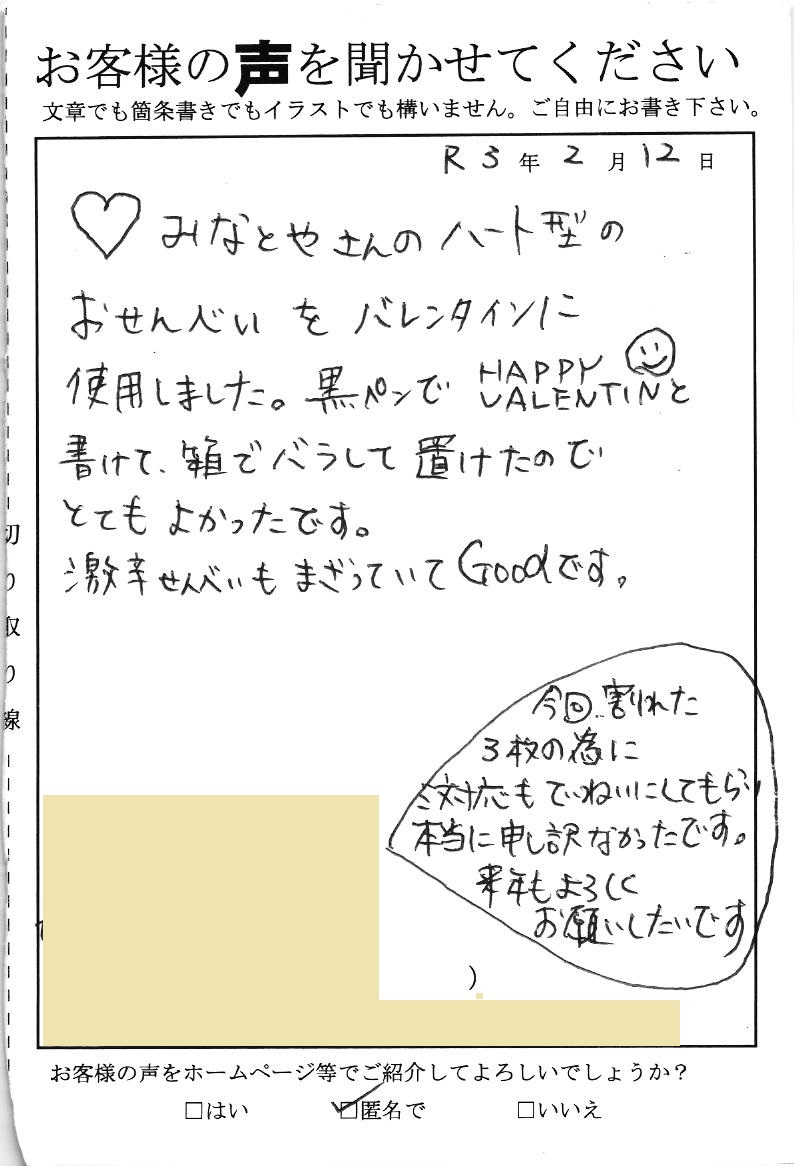 お客様の声を聞かせてください
文章でも箇条書きでもイラストでも構いません。ご自由にお書き下さい。
R3年2月12日
♡みなとやさんのハート型の
おせんべいをバレンタインに
使用しました。黒ペンでHAPPY VALENTINと
書けて、箱でバラして置けたので
とてもよかったです。
激辛せんべいもまざっていてGoodです。
今回、割れた
3枚の為に
対応もていねいにしてもらい
本当に申し訳なかったです。
来年もよろしく
お願いしたいです
)
お客様の声をホームページ等でご紹介してよろしいでしょうか?
□はい ☑匿名で □いいえ
切り取り線